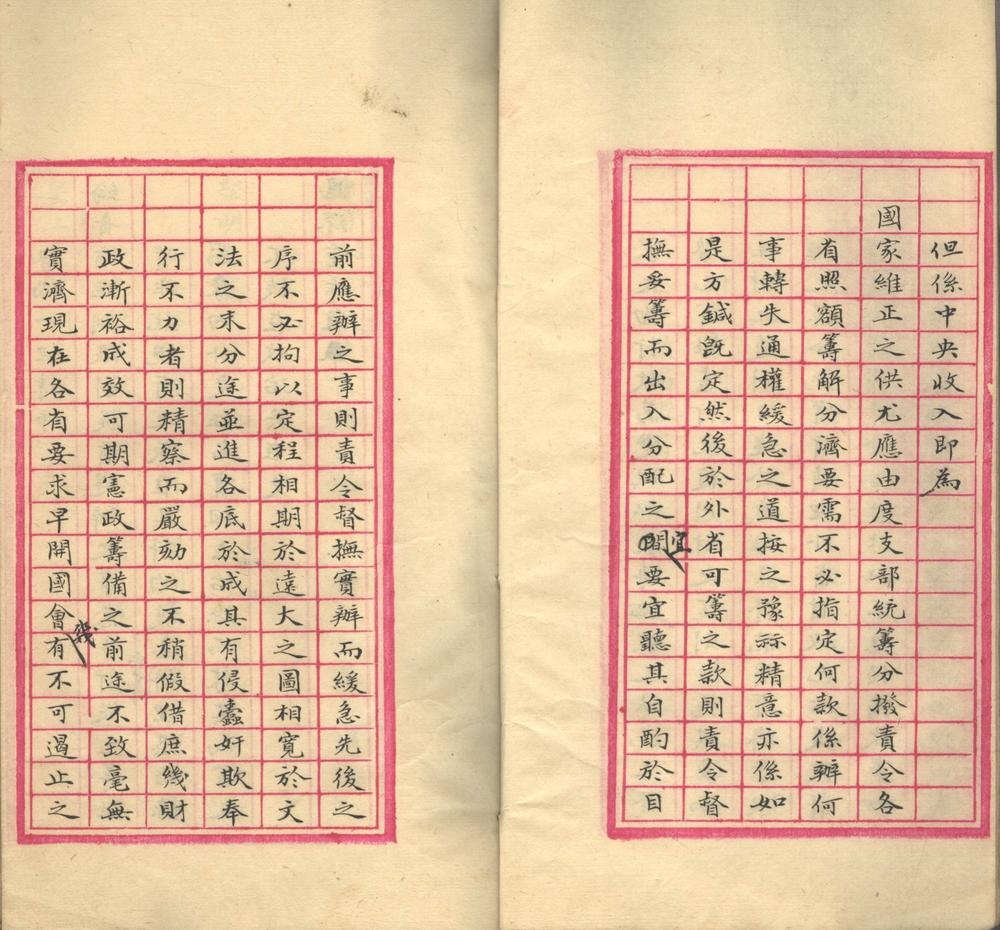 但係中央收入即為
國家維正之供尤應由度支部統籌分撥責令各
省照額籌解分濟要需不必指定何款係辦何
事轉失通權緩急之道按之豫祘精意亦係如
是方鍼既定然後於外省可籌之款則責令督
撫妥籌而出入分配之間宜要宜聽其自酌於目
前應辦之事則責令督撫實辦而緩急先後之
序不必拘以定程相期於遠大之圖相寬於文
法之末分途並進各底於成其有侵蠹奸欺奉
行不力者則精察而嚴劾之不稍假借庶幾財
政漸裕成效可期憲政籌備之前途不致毫無
實濟現在各省要求早開國會幾有不可遏止之